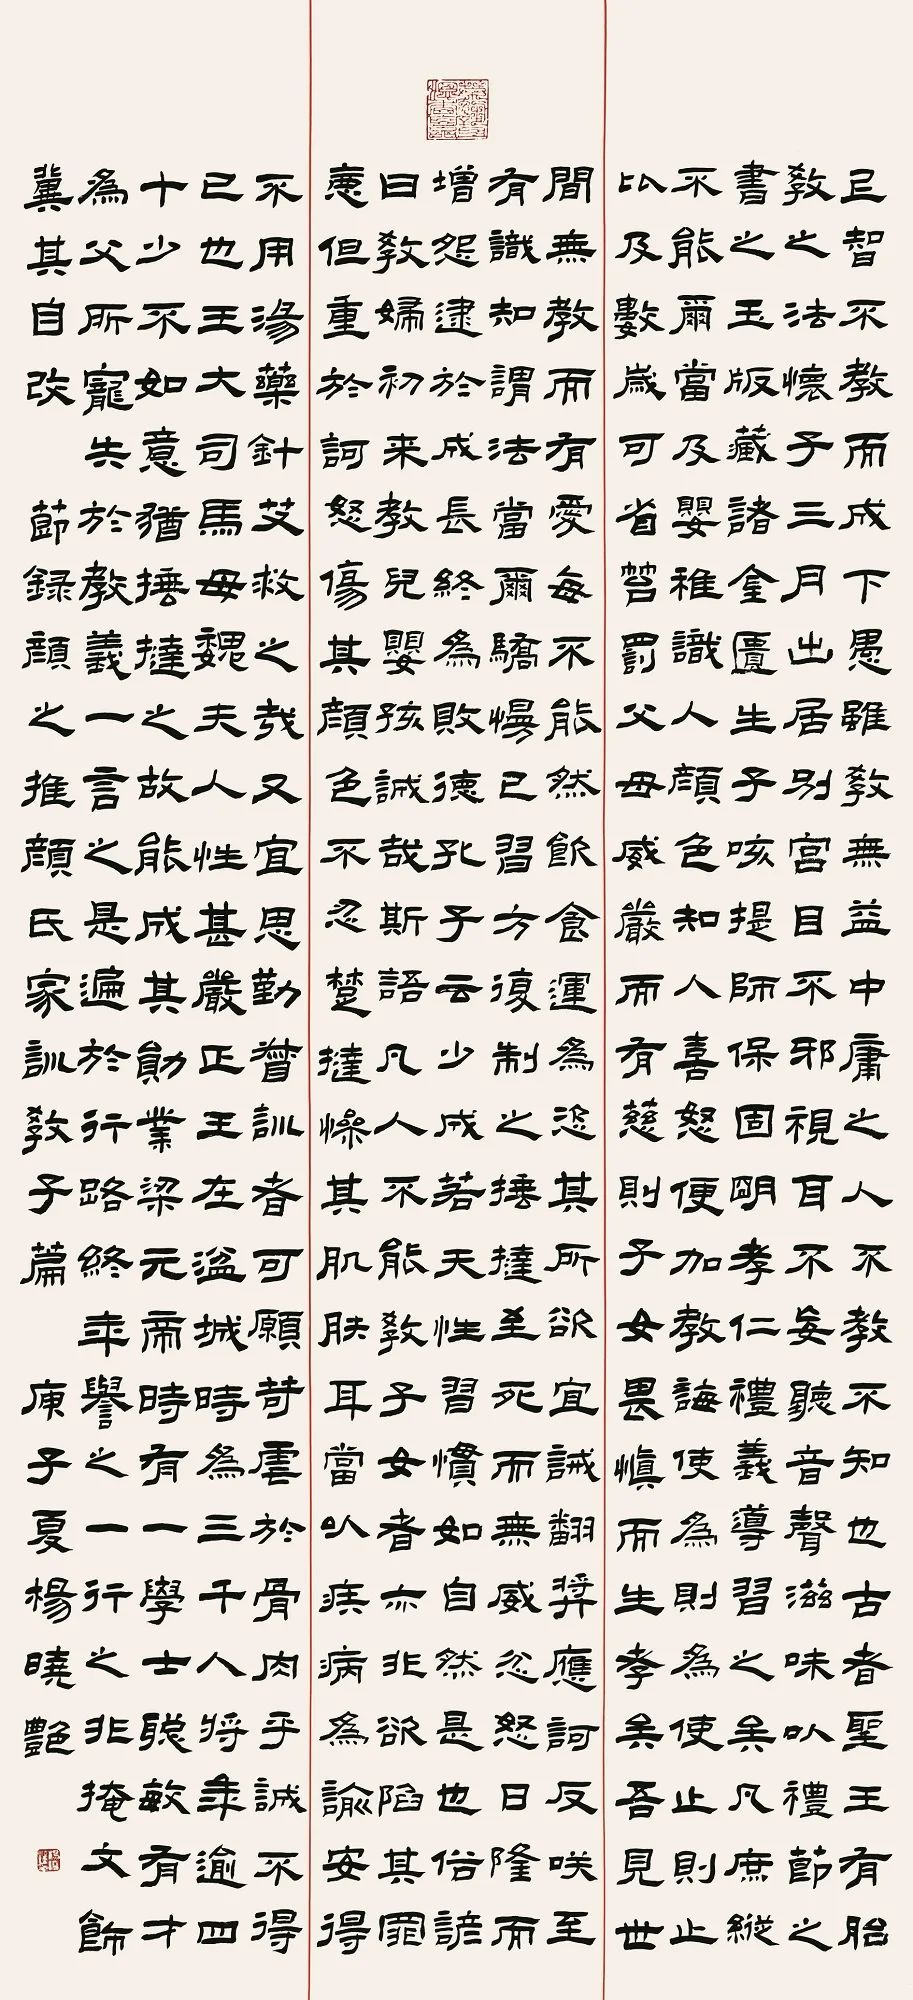 上智不教而成下愚雖教無益中庸之人不教不知也古者聖王有胎
教之法懷子三月出居別宮目不邪視耳不妄聽音聲滋味以禮節之
書之玉版藏諸金匱生子咳提師保固明孝仁禮義導習之矣凡庶縱
不能爾當及嬰稚識人顏色知人喜怒便加教誨使為則為使止則止
比及數歲可省笞罰父母威嚴而有慈則子女畏慎而生孝矣吾見世
間無教而有愛每不能然飲食運為恣其所欲宜誡翻獎應訶反咲至
有識知謂法當爾驕慢已習方復制之捶撻至死而無威忿怒日隆而
增怨逮於成長終為敗德孔子云少成若天性習慣如自然是也俗諺
曰教婦初来教兒嬰孩誠哉斯語凡人不能教子女者亦非欲陷其罪
惡但重於訶怒傷其顏色不忍楚撻慘其肌膚耳當以疾病為諭安得
不用湯藥針艾救之哉又宜思勤督訓者可願苛虐於骨肉乎誠不得
已也王大司馬母魏夫人性甚嚴正王在湓城時為三千人將年逾四
十少不如意猶捶撻之故能成其勛業梁元帝時有一學士聰敏有才
為父所寵失於教義一言之是遍於行路終年譽之一行之非掩文飾
冀其自改 節録顏之推顏氏家訓教子篇 庚子夏楊曉艷